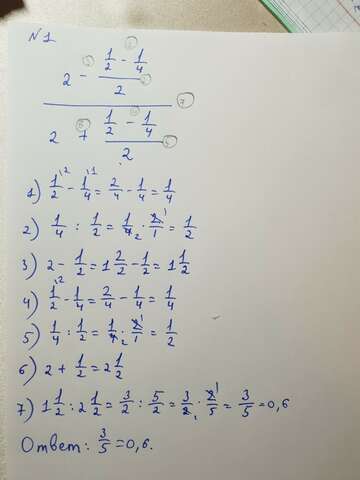 N1
2 - (1/2 - 1/4)/2
2 + (1/2 - 1/4)/2
1) 1/2 - 1/4 = 2/4 - 1/4 = 1/4
2) 1/4 : 1/2 = 1/4 · 2/1 = 1/2
3) 2 - 1/2 = 1 2/2 - 1/2 = 1 1/2
4) 1/2 - 1/4 = 2/4 - 1/4 = 1/4
5) 1/4 : 1/2 = 1/4 · 2/1 = 1/2
6) 2 + 1/2 = 2 1/2
7) 1 1/2 : 2 1/2 = 3/2 : 5/2 = 3/2 · 2/5 = 3/5 = 0,6
Ответ: 3/5 = 0,6.